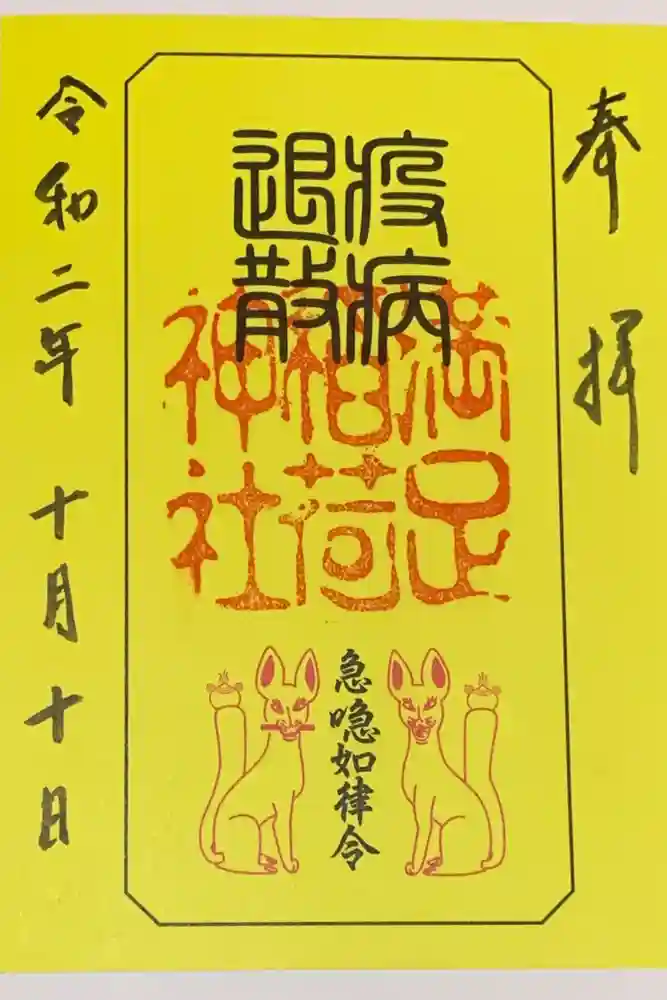 奉拝
疫病
退散
満足
稲荷
神社
急喼如律令
令和二年 十月十日